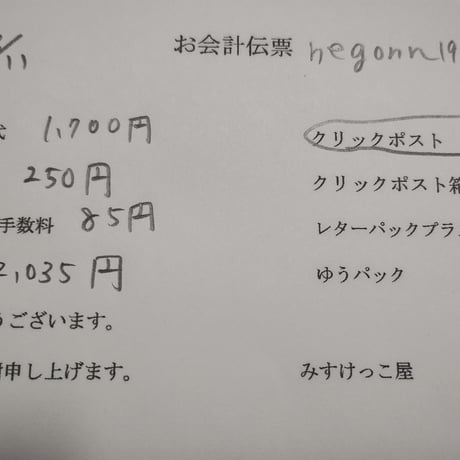 /11 お会計伝票 hegonn19
代 1,700円 クリックポスト
250円 クリックポスト箱
手数料 85円 レターパックプラ
2,035円 ゆうパック
うございます。
申し上げます。 みすけっこ屋